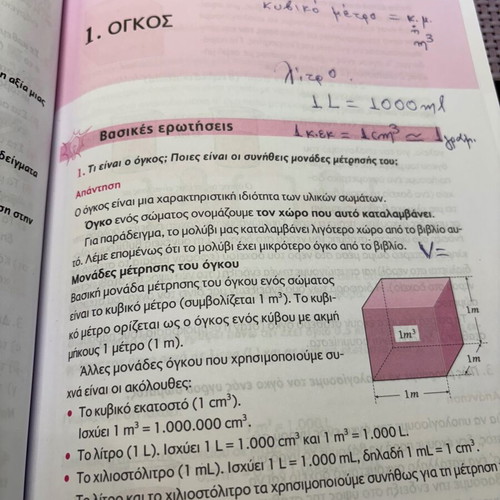 κυβικό μέτρο = κ.μ.
ή
m³
1. ΟΓΚΟΣ
λίτρο
1 L = 1000 ml
Βασικές ερωτήσεις
1 κ.εκ = 1 cm³ ≃ 1 γραμ.
η αξία μιας
δείγματα
ση στην
1. Τι είναι ο όγκος; Ποιες είναι οι συνήθεις μονάδες μέτρησής του;
Απάντηση
Ο όγκος είναι μια χαρακτηριστική ιδιότητα των υλικών σωμάτων.
Όγκο ενός σώματος ονομάζουμε τον χώρο που αυτό καταλαμβάνει.
Για παράδειγμα, το μολύβι μας καταλαμβάνει λιγότερο χώρο από το βιβλίο αυ-
τό. Λέμε επομένως ότι το μολύβι έχει μικρότερο όγκο από το βιβλίο.
V=
Μονάδες μέτρησης του όγκου
Βασική μονάδα μέτρησης του όγκου ενός σώματος
είναι το κυβικό μέτρο (συμβολίζεται 1 m³). Το κυβι-
κό μέτρο ορίζεται ως ο όγκος ενός κύβου με ακμή
μήκους 1 μέτρο (1 m).
Άλλες μονάδες όγκου που χρησιμοποιούμε συ-
χνά είναι οι ακόλουθες:
1m³
1m
1m
1m
• Το κυβικό εκατοστό (1 cm³).
Ισχύει 1 m³ = 1.000.000 cm³.
• Το λίτρο (1 L). Ισχύει 1 L = 1.000 cm³ και 1 m³ = 1.000 L.
• Το χιλιοστόλιτρο (1 mL). Ισχύει 1 L = 1.000 mL, δηλαδή 1 mL = 1 cm³.
Το λίτρο και το χιλιοστόλιτρο τα χρησιμοποιούμε συνήθως για τη μέτρηση